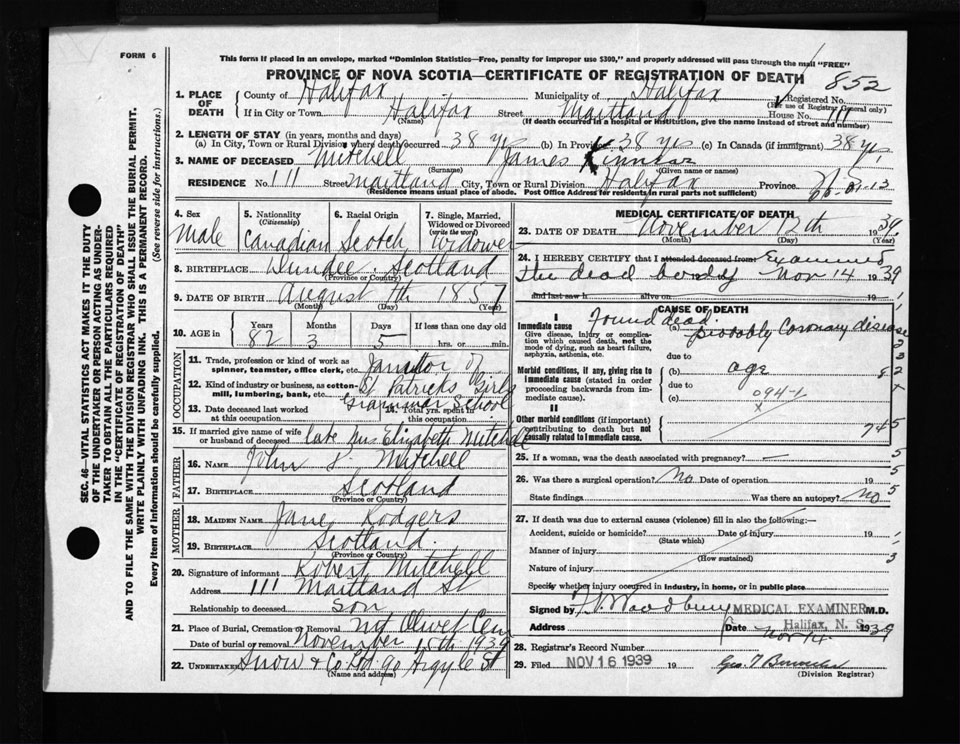 FORM 6
This form if placed in an envelope, marked "Dominion Statistics—Free, penalty for improper use $300," and properly addressed will pass through the mail "FREE"
PROVINCE OF NOVA SCOTIA—CERTIFICATE OF REGISTRATION OF DEATH
852
1. PLACE OF DEATH County of Halifax Municipality of Halifax Registered No.
(For use of Registrar General only)
If in City or Town Halifax Street Maitland House No. 111
(Name) (If death occurred in a hospital or institution, give the name instead of street and number)
2. LENGTH OF STAY (in years, months and days)
(a) In City, Town or Rural Division where death occurred 38 yrs (b) In Province 38 yrs (c) In Canada (if immigrant) 38 yrs
3. NAME OF DECEASED Mitchell James Kinnear
(Surname) (Given name or names)
RESIDENCE No. 111 Street Maitland City, Town or Rural Division Halifax Province N.S.
(Residence means usual place of abode. Post Office Address for residents in rural parts not sufficient)
4. Sex Male
5. Nationality (Citizenship) Canadian
6. Racial Origin Scotch
7. Single, Married, Widowed or Divorced (write the word) Widower
8. BIRTHPLACE Dundee Scotland
(Province or Country)
9. DATE OF BIRTH August 7th 1857
(Month) (Day) (Year)
10. AGE in Years 82 Months 3 Days 5 If less than one day old
hrs. or min.
OCCUPATION
11. Trade, profession or kind of work as spinner, teamster, office clerk, etc. Janitor of
12. Kind of industry or business, as cotton-mill, lumbering, bank, etc. St Patricks Girls
Grammar School
13. Date deceased last worked at this occupation 14. Total yrs. spent in this occupation
15. If married give name of wife or husband of deceased late Mrs Elizabeth Mitchell
FATHER
16. NAME John S. Mitchell
17. BIRTHPLACE Scotland
(Province or Country)
MOTHER
18. MAIDEN NAME Jane Rodgers
19. BIRTHPLACE Scotland.
(Province or Country)
20. Signature of informant Robert Mitchell
Address 111 Maitland St
Relationship to deceased son
21. Place of Burial, Cremation or Removal Mt Olivet Cem
Date of burial or removal November 15th 1939
22. UNDERTAKER Snow & Co Ltd 90 Argyle St
(Name and address)
MEDICAL CERTIFICATE OF DEATH
23. DATE OF DEATH November 12th 1939
(Month) (Day) (Year)
24. I HEREBY CERTIFY that I attended deceased from Examined
the dead body Nov 14 1939
and last saw h alive on 19
CAUSE OF DEATH
I
Immediate cause
Give disease, injury or complication which caused death, not the mode of dying, such as heart failure, asphyxia, asthenia, etc.
Found dead.
(a) probably Coronary disease
due to
Morbid conditions, if any, giving rise to immediate cause (stated in order proceeding backwards from immediate cause).
(b) age 82
due to
(c) 094-1
II
Other morbid conditions (if important) contributing to death but not causally related to immediate cause.
745
25. If a woman, was the death associated with pregnancy? —
26. Was there a surgical operation? No Date of operation 19
State findings Was there an autopsy? No
27. If death was due to external causes (violence) fill in also the following:—
Accident, suicide or homicide? Date of injury 19
(State which)
Manner of injury
(How sustained)
Nature of injury
Specify whether injury occurred in industry, in home, or in public place
Signed by Woodbury MEDICAL EXAMINER M.D.
Address Halifax, N. S. Date Nov 14 1939
28. Registrar's Record Number
29. Filed NOV 16 1939 19
(Division Registrar)
SEC. 46—VITAL STATISTICS ACT MAKES IT THE DUTY
OF THE UNDERTAKER OR PERSON ACTING AS UNDER-
TAKER TO OBTAIN ALL THE PARTICULARS REQUIRED
IN THE "CERTIFICATE OF REGISTRATION OF DEATH"
AND TO FILE THE SAME WITH THE DIVISION REGISTRAR WHO SHALL ISSUE THE BURIAL PERMIT.
WRITE PLAINLY WITH UNFADING INK. THIS IS A PERMANENT RECORD.
Every item of information should be carefully supplied. (See reverse side for instructions.)